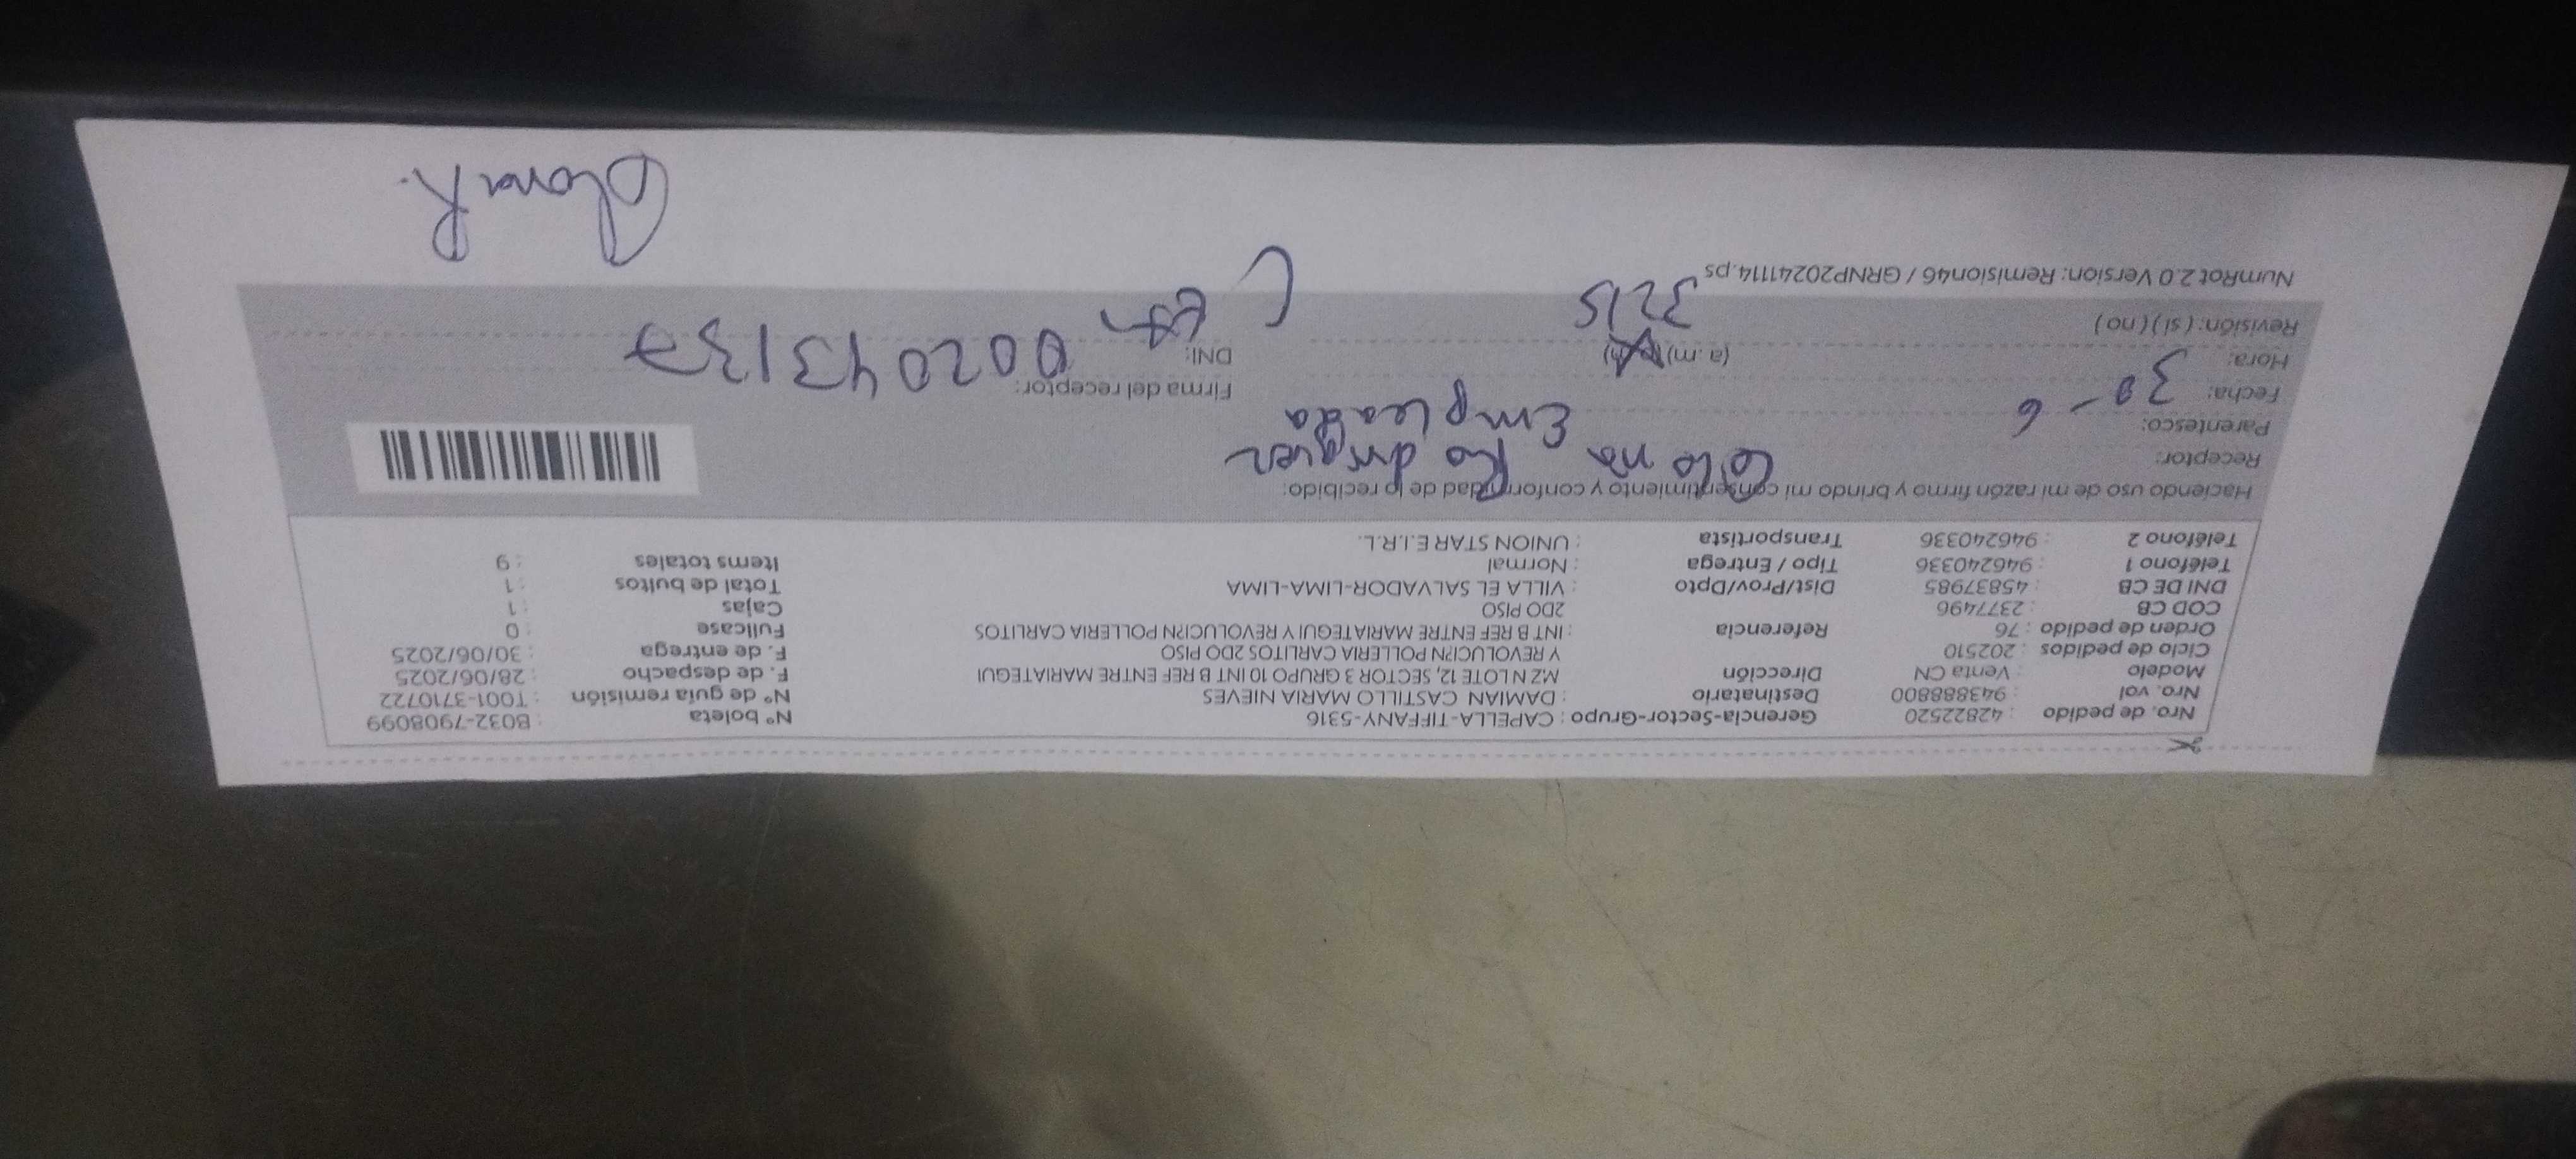 Nro. de pedido : 42822520 Gerencia-Sector-Grupo : CAPELLA-TIFFANY-5316 N° boleta : B032-7908099
Nro. vol : 943888800 Destinatario : DAMIAN CASTILLO MARIA NIEVES N° de guía remisión : T001-3710722
Modelo : Venta CN Dirección MZ N LOTE 12, SECTOR 3 GRUPO 10 INT B REF ENTRE MARIATEGUI F. de despacho : 28/06/2025
Ciclo de pedidos : 202510 Y REVOLUCI?N POLLERIA CARLITOS 2DO PISO F. de entrega : 30/06/2025
Orden de pedido : 76 Referencia : INT B REF ENTRE MARIATEGUI Y REVOLUCI?N POLLERIA CARLITOS Fullcase : 0
COD CB : 2377496 2DO PISO Cajas : 1
DNI DE CB : 45837985 Dist/Prov/Dpto : VILLA EL SALVADOR-LIMA-LIMA Total de bultos : 1
Teléfono 1 : 946240336 Tipo / Entrega : Normal Items totales : 9
Teléfono 2 : 946240336 Transportista : UNION STAR E.I.R.L.
Haciendo uso de mi razón firmo y brindo mi consentimiento y conformidad de lo recibido:
Receptor: Rodriguez
Parentesco: Empleada
Fecha: 30-6 Firma del receptor:
Hora: (a.m) DNI: 002043137
Revisión: (si) (no) 3215
NumRot 2.0 Version: Remision46 / GRNP20241114.ps